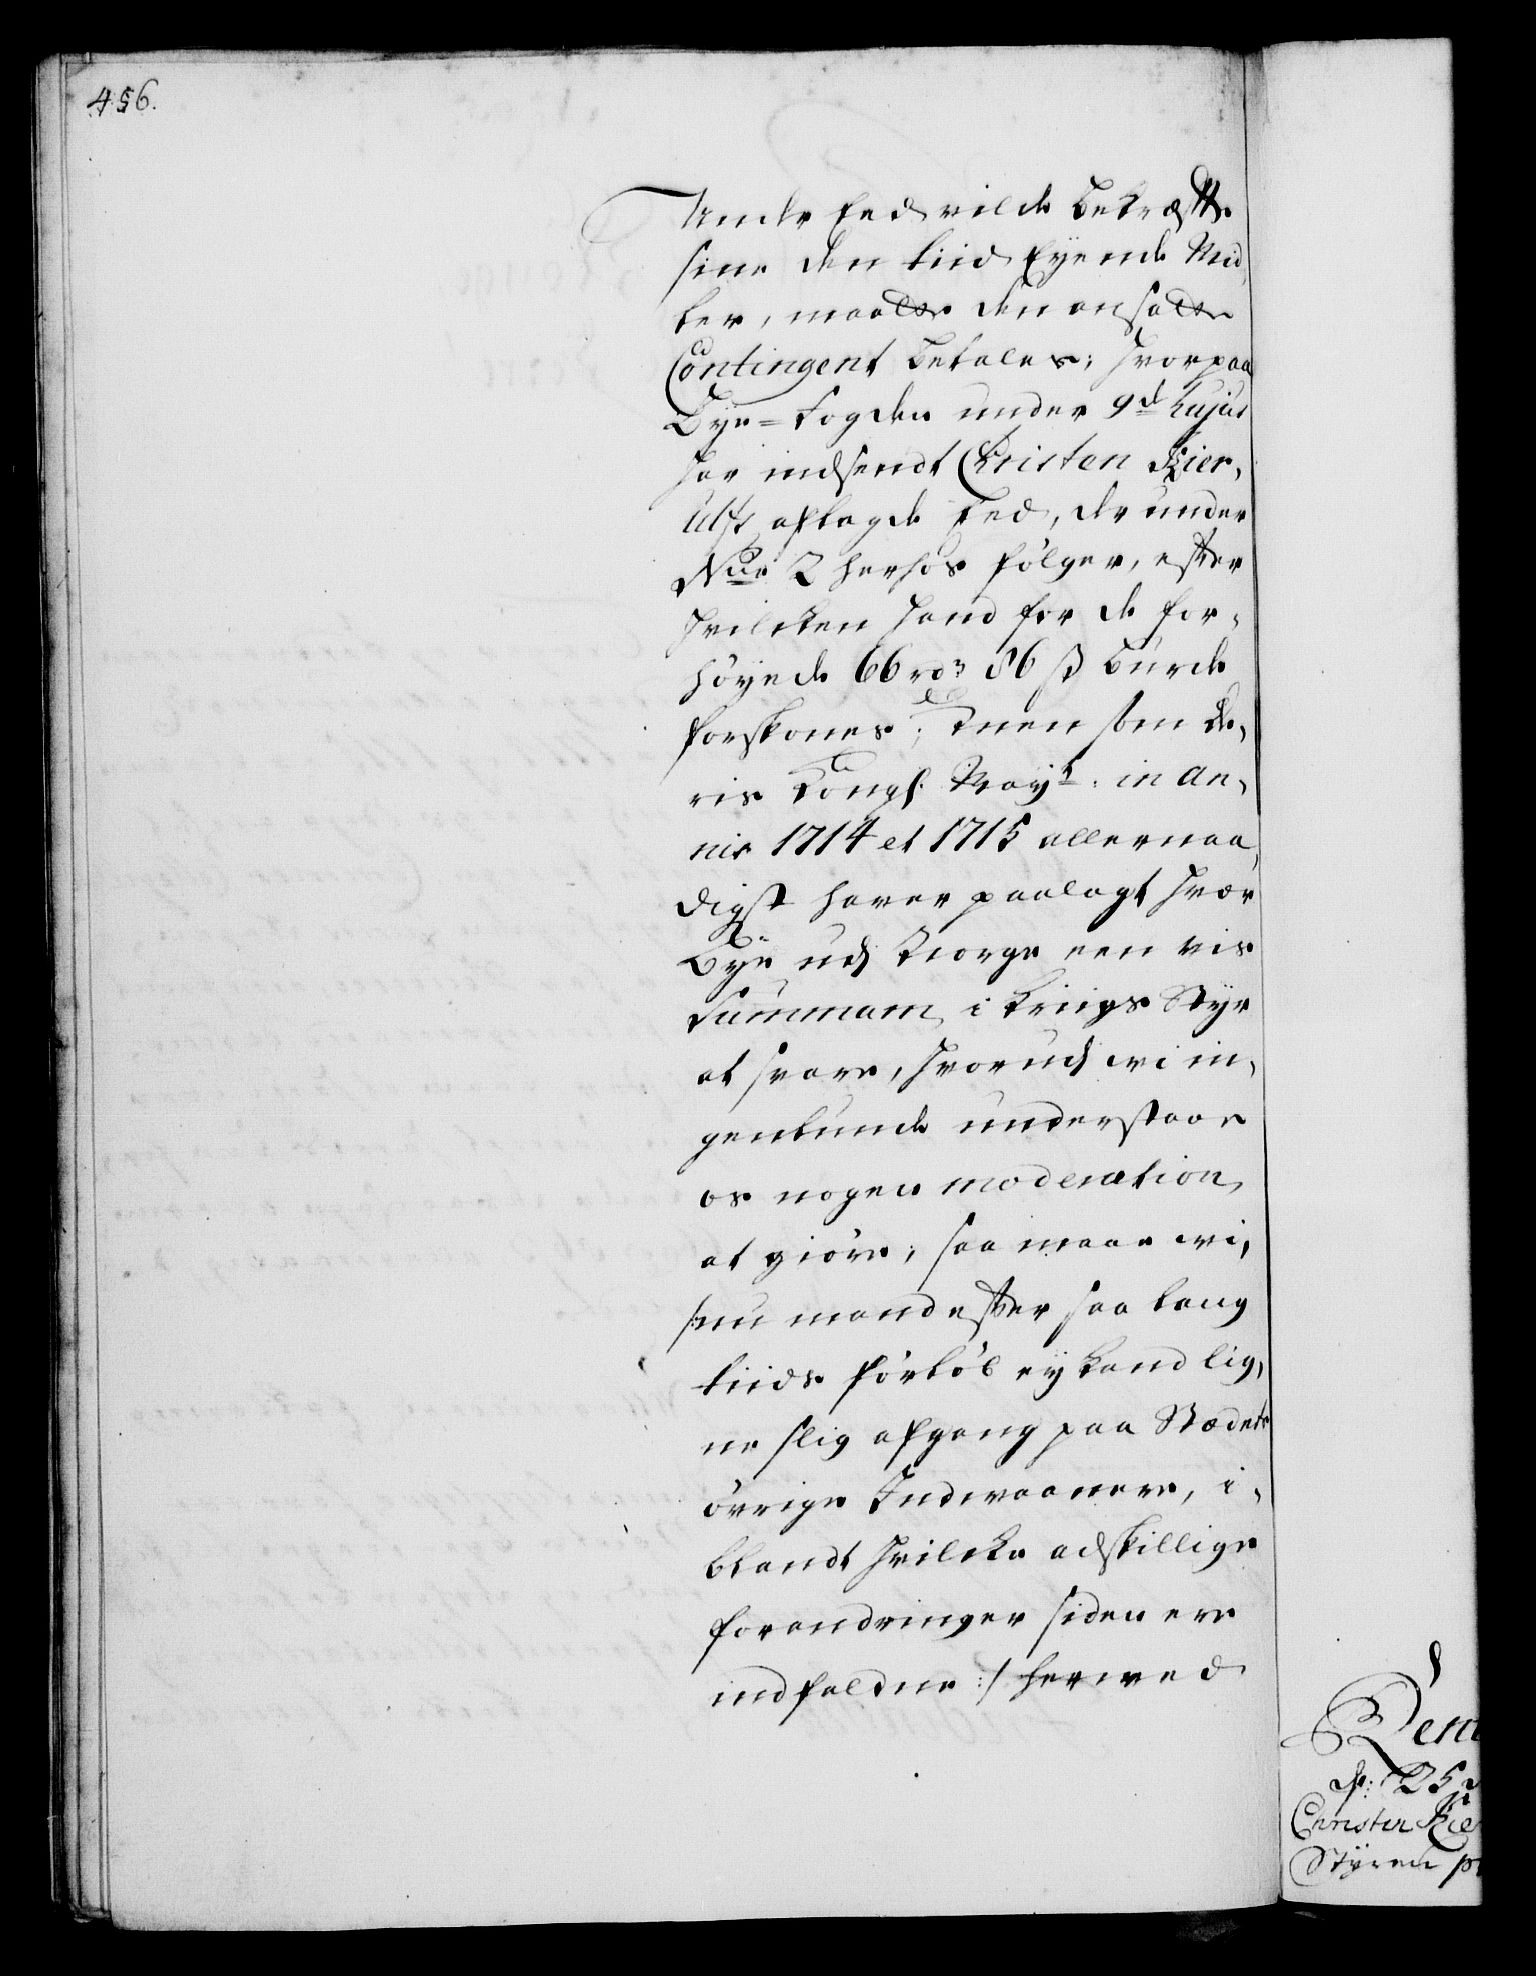 456.
Under Eed vilde bekræffte
sine den tiid Eyende Mid,
ler, maatte den ansatte
Contingent betales; hvorpaa
Bye=fogden under 9de hujus
har indsendt Christen Kier,
ulfs aflagde Eed, der under
Nus 2 herhos følger, efter
hvilcken hand for de for,
høyede 66 rdr 86 ß burde
forskones; men som De,
ris Kongl: Mayts: in an,
nis 1714 et 1715 allernaa,
digst haver paalagt hver
Bye udj Norge een vis
Summam i Kriigs Styr
at svare, hvorudj wi in,
genlunde understaar
os nogen moderation
at giøre; saa maae wi,
/:nu mand efter saa lang
tiids forløb ey kand lig,
ne slig afgang paa Stædets
øvrige Indvaanere, i,
blandt hvilcke adskillige
forandringer siden ere
indfaldne:/ herved
Rent
d: 25
Christen Kier
Styren p